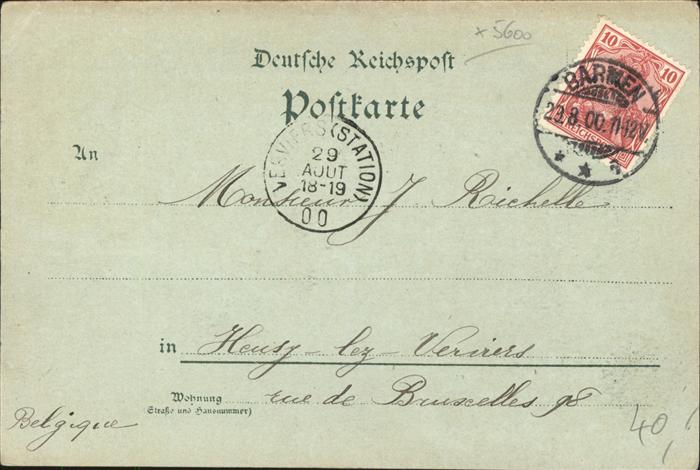 × 5600
Deutsche Reichspost
Postkarte
10
10
REICHSPOST
BARMEN
29.8.00.11-12V
* * a
VERVIERS (STATION)
29
AOUT
18-19
00
An
Monsieur J. Richelle
in Heusy-lez-Verviers
Wohnung
(Straße und Hausnummer)
rue de Bruxelles 98
Belgique
40,